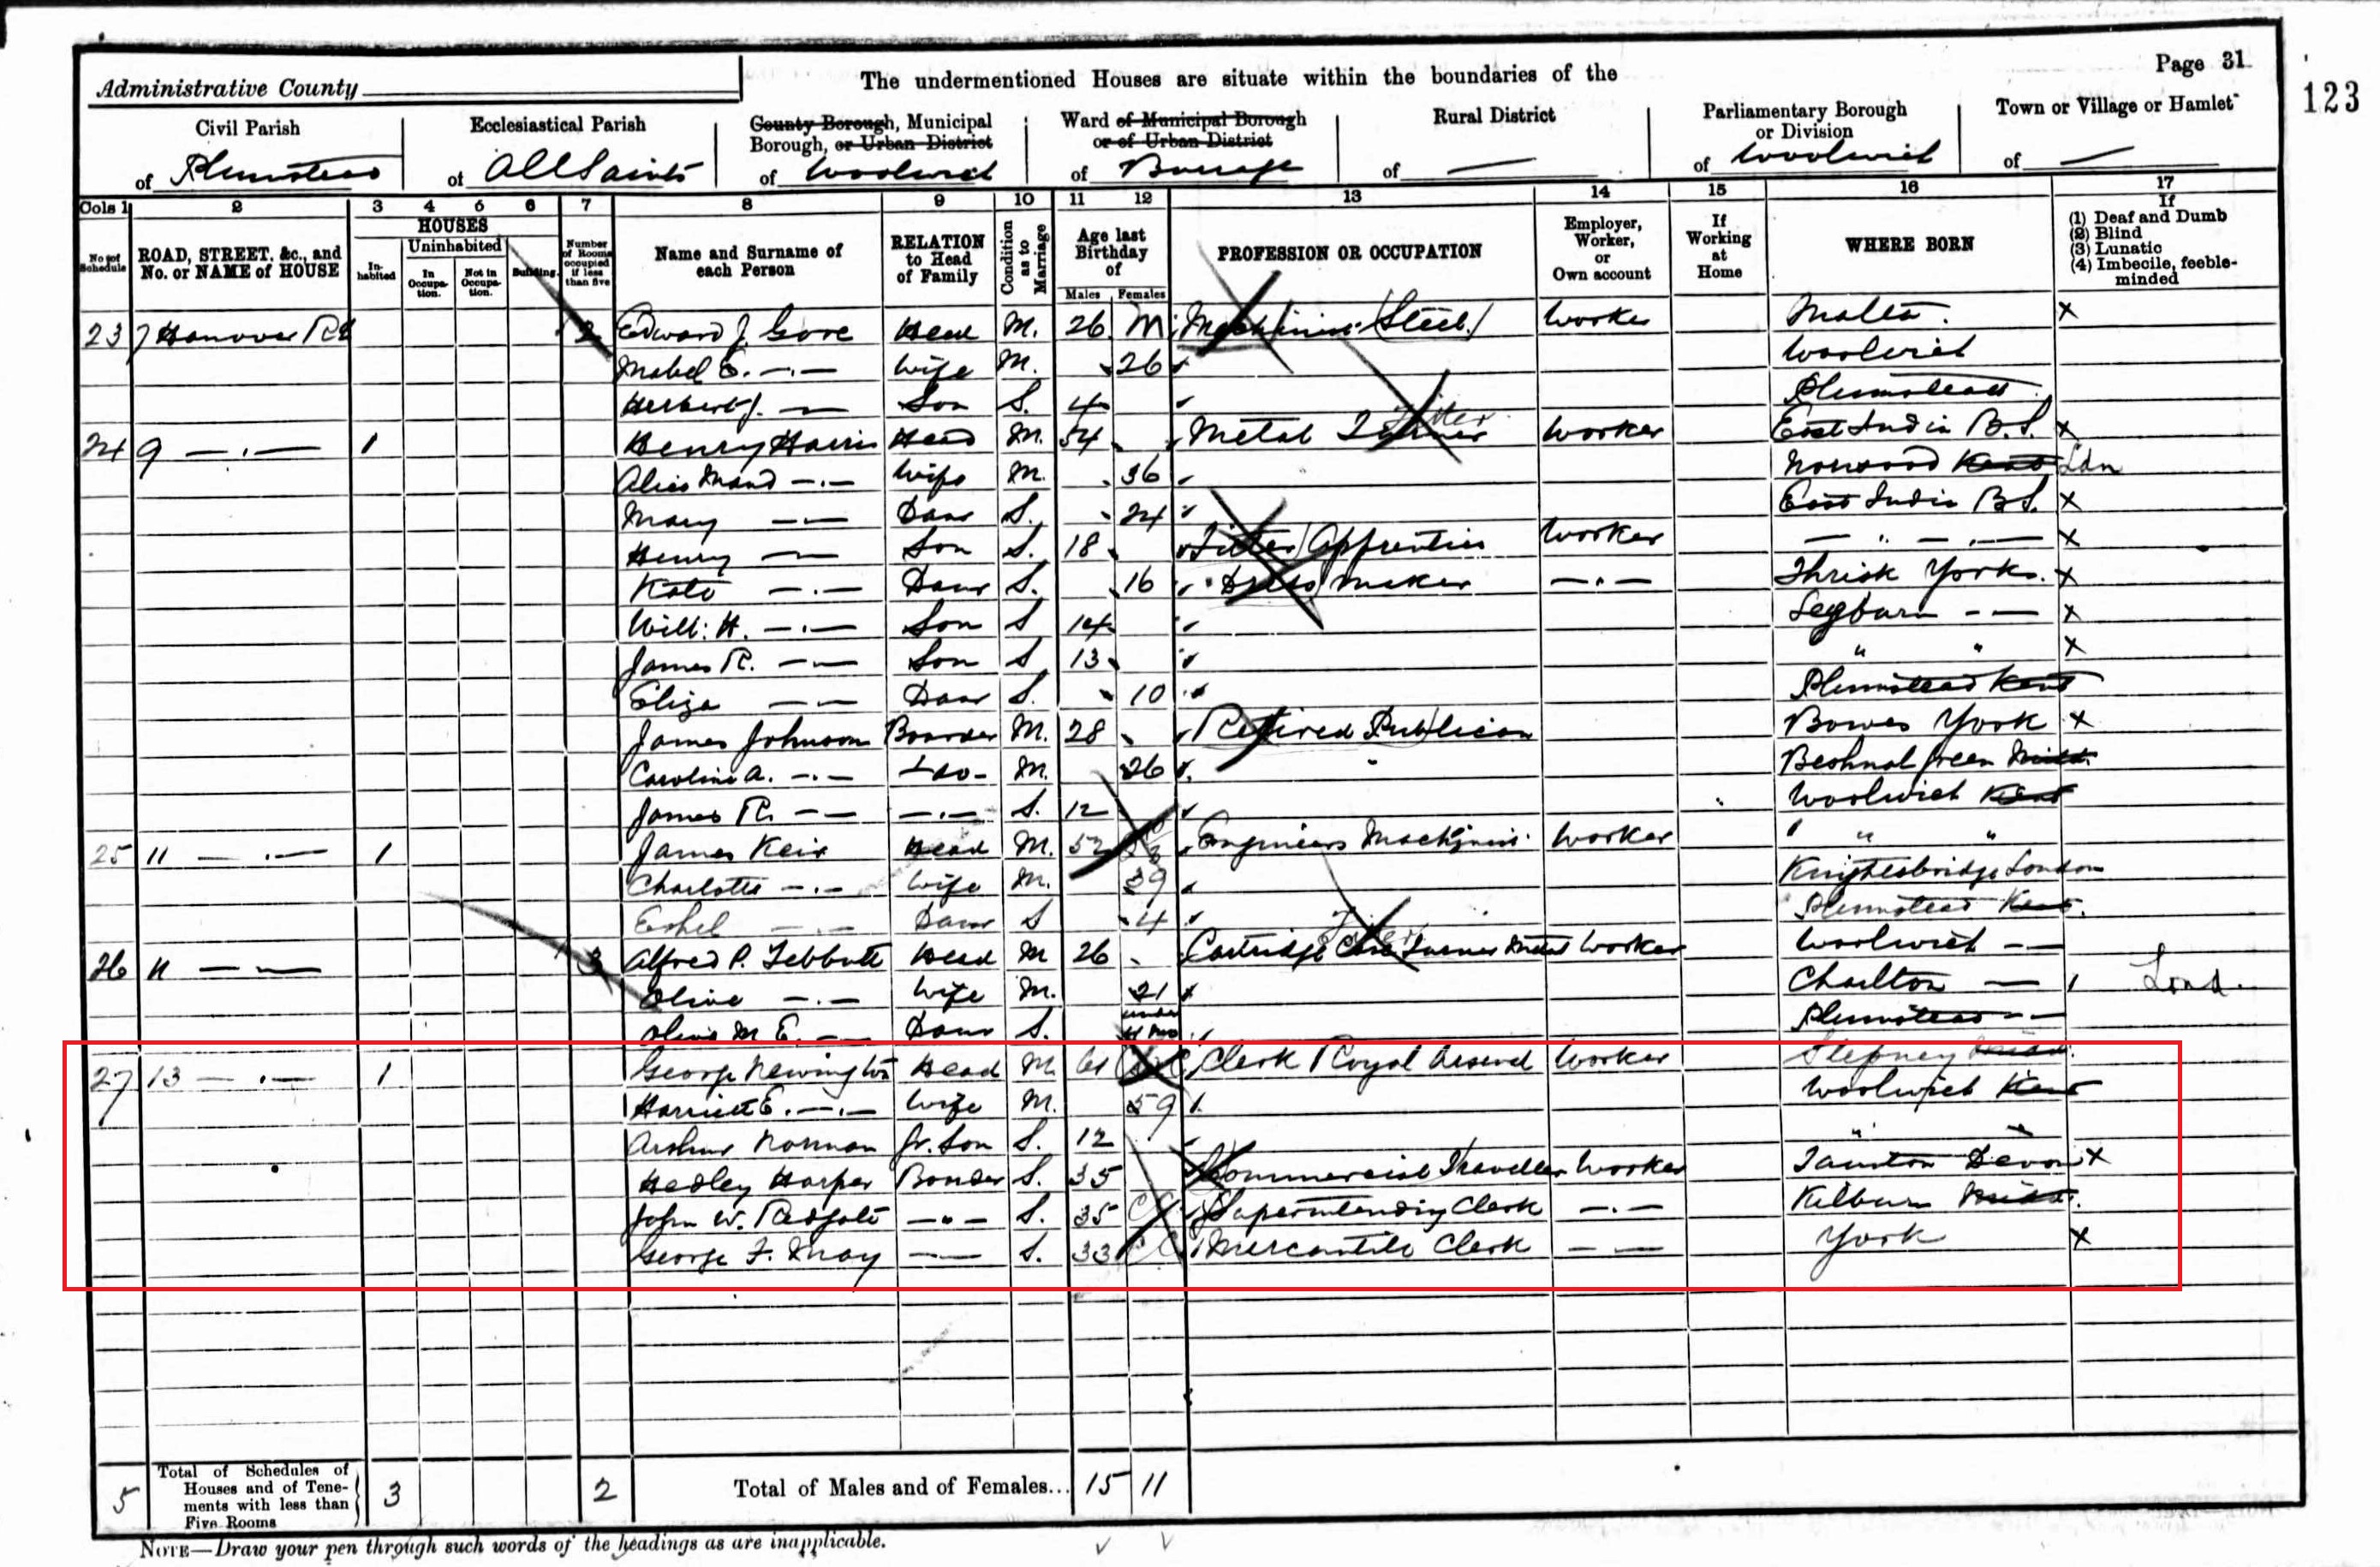 Page 31
123
Administrative County
The undermentioned Houses are situate within the boundaries of the
Civil Parish
of Plumstead
Ecclesiastical Parish
of All Saints
County Borough, Municipal
Borough, or Urban District
of Woolwich
Ward of Municipal Borough
or of Urban District
of Burrage
Rural District
of —
Parliamentary Borough
or Division
of Woolwich
Town or Village or Hamlet
of —
Cols 1 2 3 4 5 6 7 8 9 10 11 12 13 14 15 16 17
No of Schedule
ROAD, STREET, &c., and
No. or NAME of HOUSE
HOUSES
In-
habited
Uninhabited
In
Occupa-
tion.
Not in
Occupa-
tion.
Building.
Number
of Rooms
occupied
if less
than five
Name and Surname of
each Person
RELATION
to Head
of Family
Condition
as to
Marriage
Age last
Birthday
of
Males Females
PROFESSION OR OCCUPATION
Employer,
Worker,
or
Own account
If
Working
at
Home
WHERE BORN
If
(1) Deaf and Dumb
(2) Blind
(3) Lunatic
(4) Imbecile, feeble-
minded
23 7 Hanover Rd 2 Edward J. Gore Head M. 26 M Machinist (Steel) Worker Malta. x
Mabel E. —.— Wife M. 26 Woolwich
Herbert J. — Son S. 4 Plumstead
24 9 —.— 1 Henry Harris Head M. 54 Metal Turner Worker East India B.S. x
Alice Maud —.— Wife M. 36 Norwood Kent Ldn
Mary —— Daur S. 24 East India B.S. x
Henry — Son S. 18 Fitter Apprentice Worker — " — . — x
Kate —.— Daur S. 16 Dress Maker —.— Thrisk Yorks. x
Will: H. —.— Son S 14 Leyburn —— x
James R. —— Son S 13 " " x
Eliza —— Daur S. 10 Plumstead Kent
James Johnson Boarder M. 28 Retired Publican Bowes York x
Caroline A. —.— -do- M. 26 Bethnal Green Midd.
James R. —— —.— S. 12 Woolwich Kent
25 11 —.— 1 James Keir Head M. 52 Engineers Machinist Worker " "
Charlotte —.— Wife M. 39 Knightsbridge London
Ethel —.— Daur S 4 Plumstead Kent.
26 11 —— 3 Alfred P. Tebbutt Head M 26 Cartridge Case Turner Metal Worker Woolwich ——
Olive —.— Wife M. 21 Charlton — Lond.
Olive M. E. — Daur S. under Mos Plumstead ——
27 13 —.— 1 George Newington Head M. 61 Clerk Royal Arsenal Worker Stepney Midd.
Harriett E. —.— Wife M. 59 Woolwich Kent
Arthur Norman Gr. Son S. 12 " "
Hedley Harper Boarder S. 35 Commercial Traveller Worker Devon x
John W. Redgate —"— S. 35 Superintending Clerk —.— Kilburn Midd.
George F. May —— S. 33 Mercantile Clerk —— York x
5 Total of Schedules of
Houses and of Tene-
ments with less than
Five Rooms
3 2 Total of Males and of Females... 15 11
NOTE—Draw your pen through such words of the headings as are inapplicable.